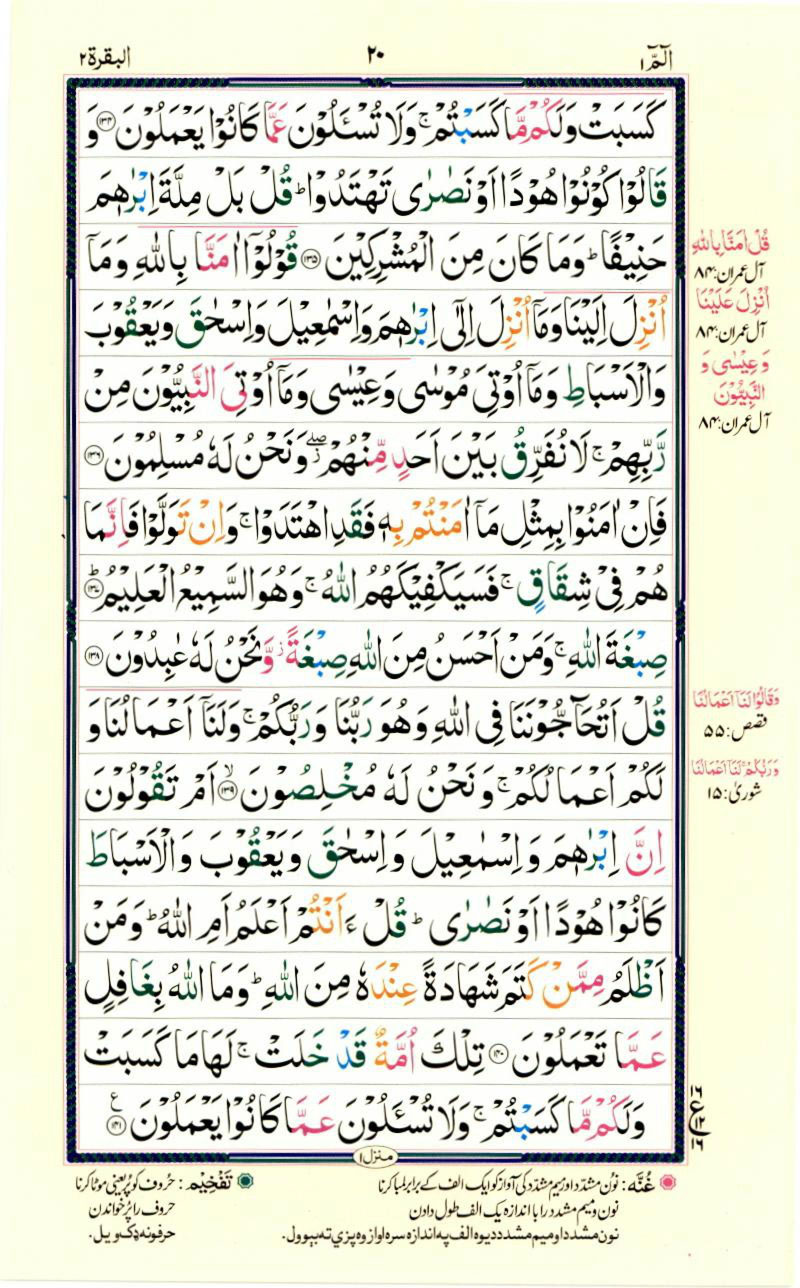 الٓمّٓ ۱
۲۰
البقرة ۲
كَسَبَتْ وَلَكُمْ مَّا كَسَبْتُمْ ۚ وَلَا تُسْـَٔلُوْنَ عَمَّا كَانُوْا يَعْمَلُوْنَ ﴿۱۳۴﴾ وَ
قَالُوْا كُوْنُوْا هُوْدًا اَوْ نَصٰرٰى تَهْتَدُوْا ؕ قُلْ بَلْ مِلَّةَ اِبْرٰهٖمَ
حَنِيْفًا ؕ وَمَا كَانَ مِنَ الْمُشْرِكِيْنَ ﴿۱۳۵﴾ قُوْلُوْٓا اٰمَنَّا بِاللّٰهِ وَمَآ
اُنْزِلَ اِلَيْنَا وَمَآ اُنْزِلَ اِلٰٓى اِبْرٰهٖمَ وَاِسْمٰعِيْلَ وَاِسْحٰقَ وَيَعْقُوْبَ
وَالْاَسْبَاطِ وَمَآ اُوْتِيَ مُوْسٰى وَعِيْسٰى وَمَآ اُوْتِيَ النَّبِيُّوْنَ مِنْ
رَّبِّهِمْ ۚ لَا نُفَرِّقُ بَيْنَ اَحَدٍ مِّنْهُمْ ۖ وَنَحْنُ لَهٗ مُسْلِمُوْنَ ﴿۱۳۶﴾
فَاِنْ اٰمَنُوْا بِمِثْلِ مَآ اٰمَنْتُمْ بِهٖ فَقَدِ اهْتَدَوْا ۚ وَاِنْ تَوَلَّوْا فَاِنَّمَا
هُمْ فِيْ شِقَاقٍ ۚ فَسَيَكْفِيْكَهُمُ اللّٰهُ ۚ وَهُوَ السَّمِيْعُ الْعَلِيْمُ ؕ ﴿۱۳۷﴾
صِبْغَةَ اللّٰهِ ۚ وَمَنْ اَحْسَنُ مِنَ اللّٰهِ صِبْغَةً ؗ وَّنَحْنُ لَهٗ عٰبِدُوْنَ ﴿۱۳۸﴾
قُلْ اَتُحَآجُّوْنَنَا فِي اللّٰهِ وَهُوَ رَبُّنَا وَرَبُّكُمْ ۚ وَلَنَآ اَعْمَالُنَا وَ
لَكُمْ اَعْمَالُكُمْ ۚ وَنَحْنُ لَهٗ مُخْلِصُوْنَ ۙ ﴿۱۳۹﴾ اَمْ تَقُوْلُوْنَ
اِنَّ اِبْرٰهٖمَ وَاِسْمٰعِيْلَ وَاِسْحٰقَ وَيَعْقُوْبَ وَالْاَسْبَاطَ
كَانُوْا هُوْدًا اَوْ نَصٰرٰى ؕ قُلْ ءَاَنْتُمْ اَعْلَمُ اَمِ اللّٰهُ ؕ وَمَنْ
اَظْلَمُ مِمَّنْ كَتَمَ شَهَادَةً عِنْدَهٗ مِنَ اللّٰهِ ؕ وَمَا اللّٰهُ بِغَافِلٍ
عَمَّا تَعْمَلُوْنَ ﴿۱۴۰﴾ تِلْكَ اُمَّةٌ قَدْ خَلَتْ ۚ لَهَا مَا كَسَبَتْ
وَلَكُمْ مَّا كَسَبْتُمْ ۚ وَلَا تُسْـَٔلُوْنَ عَمَّا كَانُوْا يَعْمَلُوْنَ ﴿۱۴۱﴾ ع
قُلْ اٰمَنَّا بِاللّٰهِ
آل عمران: ۸۴
اُنْزِلَ عَلَيْنَا
آل عمران: ۸۴
وَعِيْسٰى وَ
النَّبِيُّوْنَ
آل عمران: ۸۴
وَقَالُوْا لَنَآ اَعْمَالُنَا
قصص: ۵۵
وَرَبُّكُمْ لَنَآ اَعْمَالُنَا
شوریٰ: ۱۵
۱۶
ع ۱۲
۱۶
منزل ۱
غُنَّه: نون مشدد اور میم مشدد کی آواز کو ایک الف کے برابر لمبا کرنا
نون و میم مشدد را با اندازه یک الف طول دادن
نون مشدد او میم مشدد دیوه الف په اندازه سره اواز وه پزي ته بېوول.
تَفْخِيْم: حروف کو پُر یعنی موٹا کرنا
حروف را پُر خواندن
حرفونه ډک ویل.